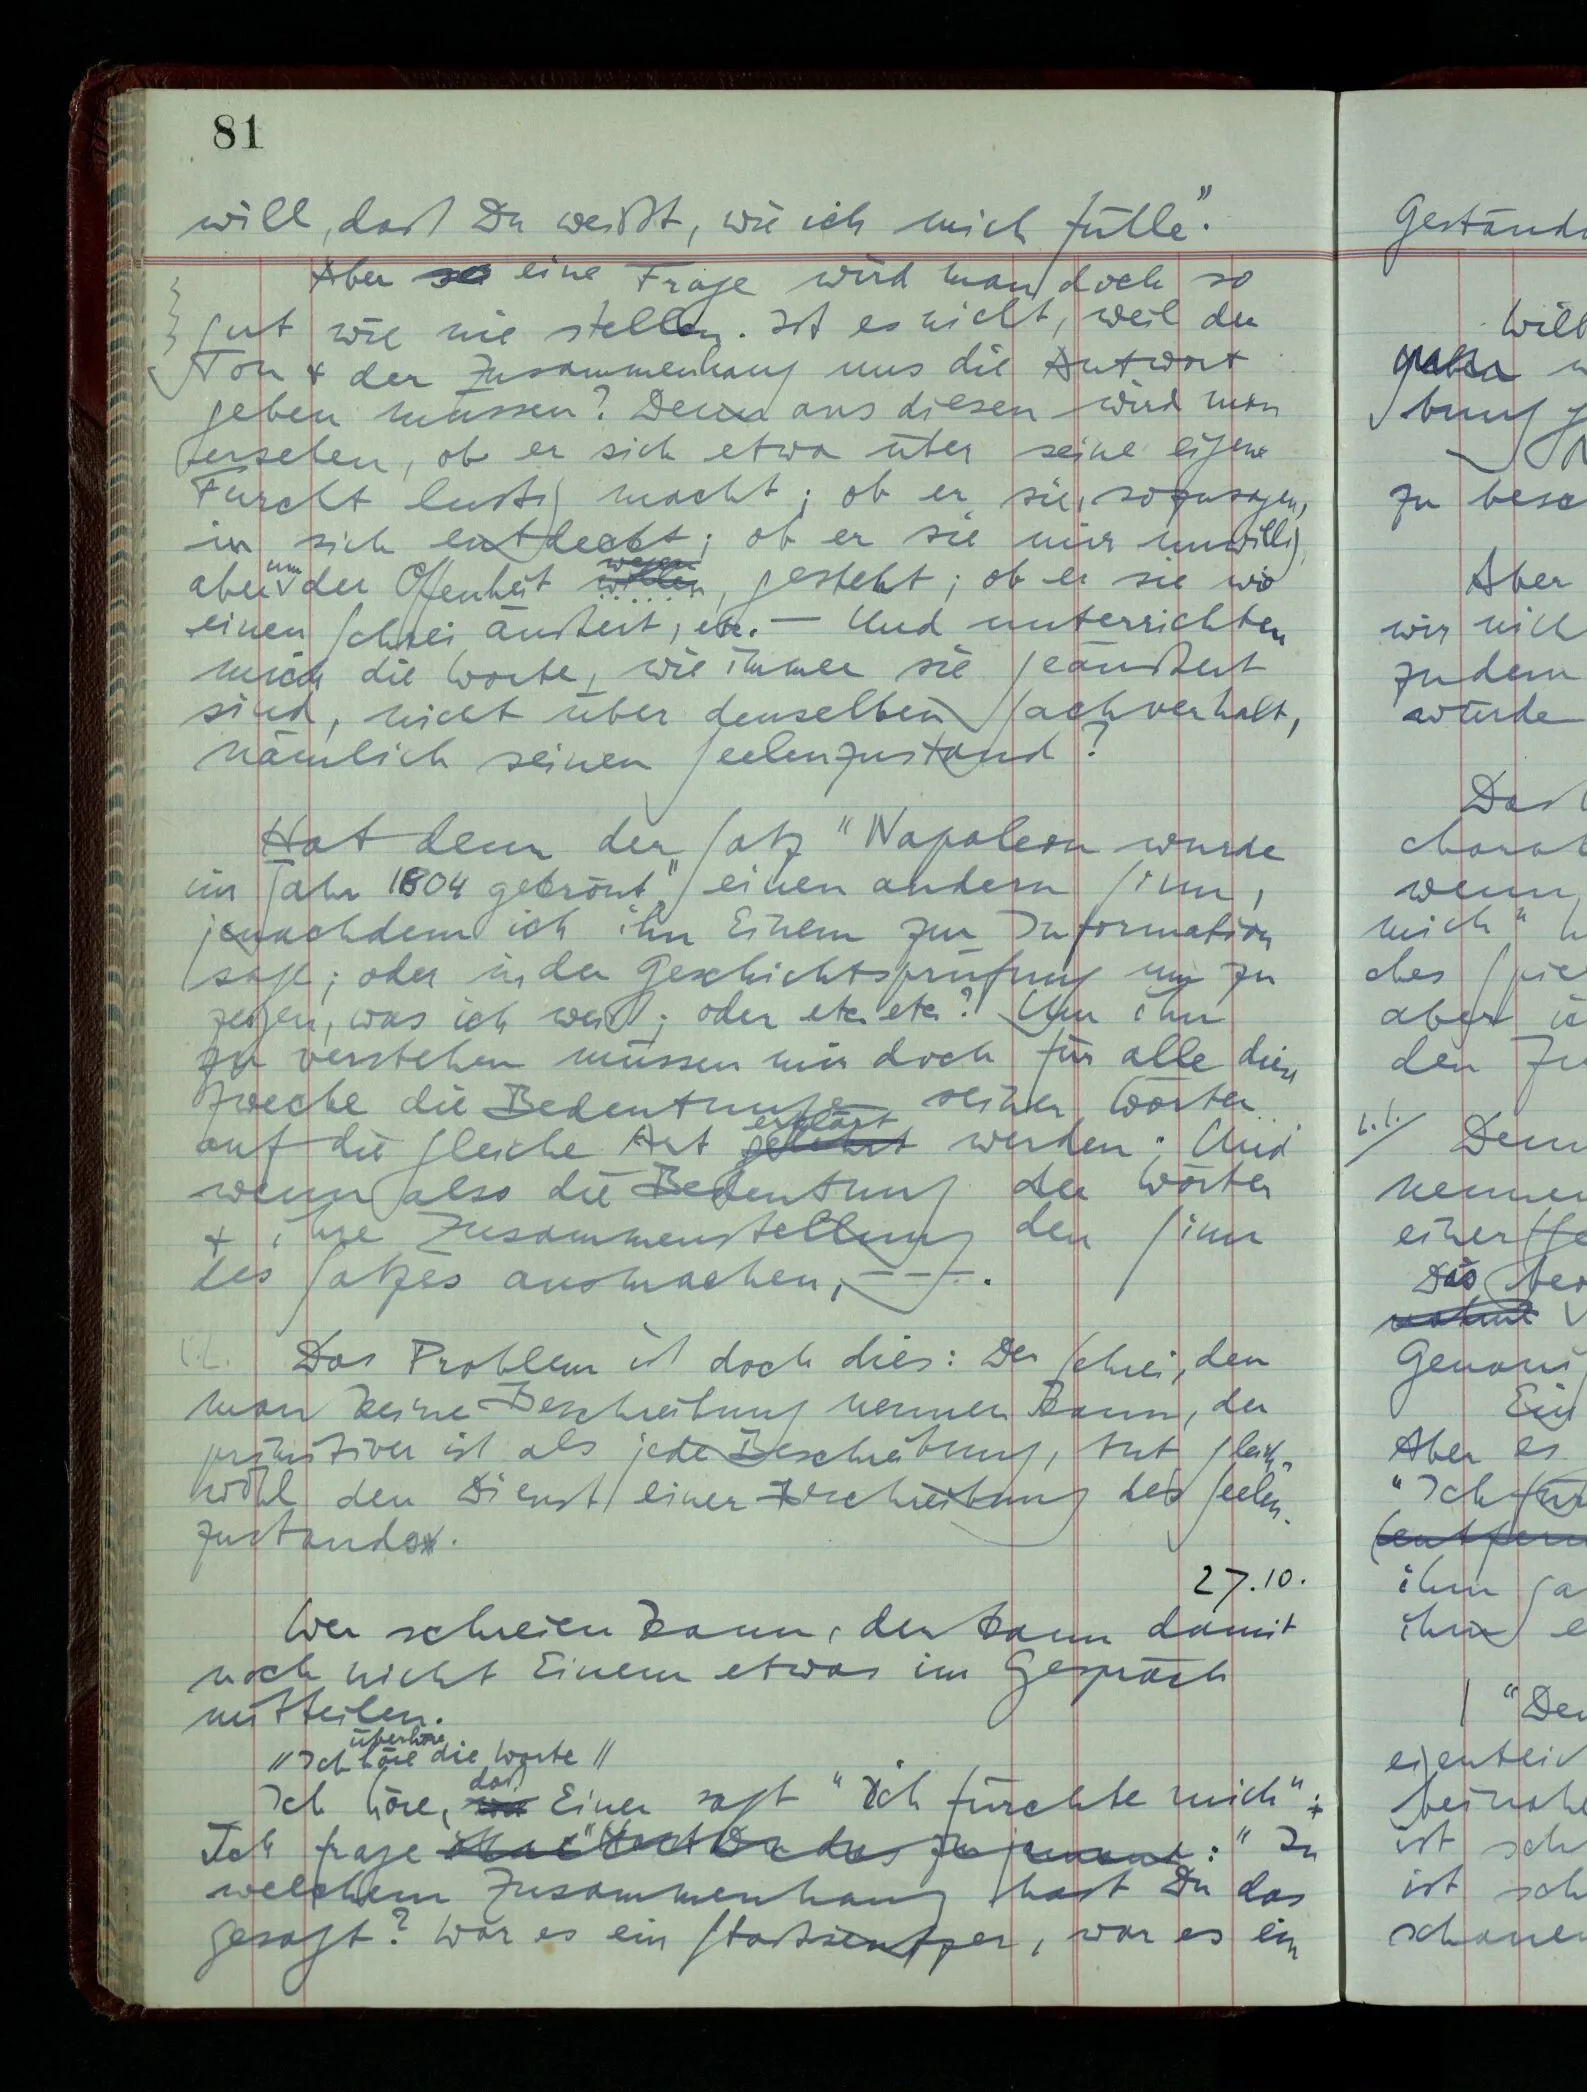 81
will, daß Du weißt, wie ich mich fühle".
Aber so eine Frage wird man doch so
gut wie nie stellen. Ist es nicht, weil der
Ton & der Zusammenhang uns die Antwort
geben müssen? Denn aus diesen wird man
ersehen, ob er sich etwa über seine eigene
Furcht lustig macht; ob er sie, sozusagen,
in sich entdeckt; ob er sie mir unwillig,
aber um der Offenheit willen wegen, gesteht; ob er sie wie
einen Schrei äußert, etc. — Und unterrichten
mich die Worte, wie immer sie geäußert
sind, nicht über denselben Sachverhalt,
nämlich seinen Seelenzustand?
Hat denn der Satz "Napoleon wurde
im Jahr 1804 gekrönt" einen andern Sinn,
jenachdem ich ihn Einem zur Information
sage; oder in der Geschichtsprüfung um zu
zeigen, was ich weiß; oder etc etc? Um ihn
zu verstehen müssen mir doch für alle diese
Zwecke die Bedeutungen seiner Wörter
auf die gleiche Art gelehrt erklärt werden. Und
wenn also die Bedeutung der Wörter
& ihre Zusammenstellung den Sinn
des Satzes ausmachen, – – – .
Das Problem ist doch dies: Der Schrei, den
man keine Beschreibung nennen kann, der
primitiver ist als jede Beschreibung, tut gleich-
wohl den Dienst einer Beschreibung des Seelen-
zustands.
27.10.
Wer schreien kann, der kann damit
noch nicht Einem etwas im Gespräch
mitteilen.
überhöre
"Ich höre die Worte"
Ich höre, wie daß Einer sagt "Ich fürchte mich".
Ich frage : "In
welchem Zusammenhang hast Du das
gesagt? War es ein Stoßseufzer, war es ein
Geständ
zu besc
Aber
wir nich
zudem
würde
wenn
mich"
aber
den Zu
Denn
nennen
Das
Genaui
Ein
Aber es
ihm
ihn
"Den
eigentlic
beinahe
ist sch
ist sch
schauen